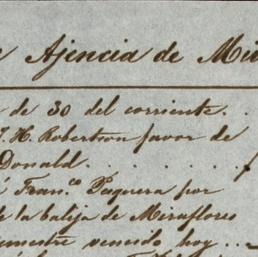 Ajencia de
de 30 del corriente. .
J. H. Robertson favor de
Donald. . . . . . .
Fran.co Paquera por
de la balija de Miraflores
semestre vencido hoy...